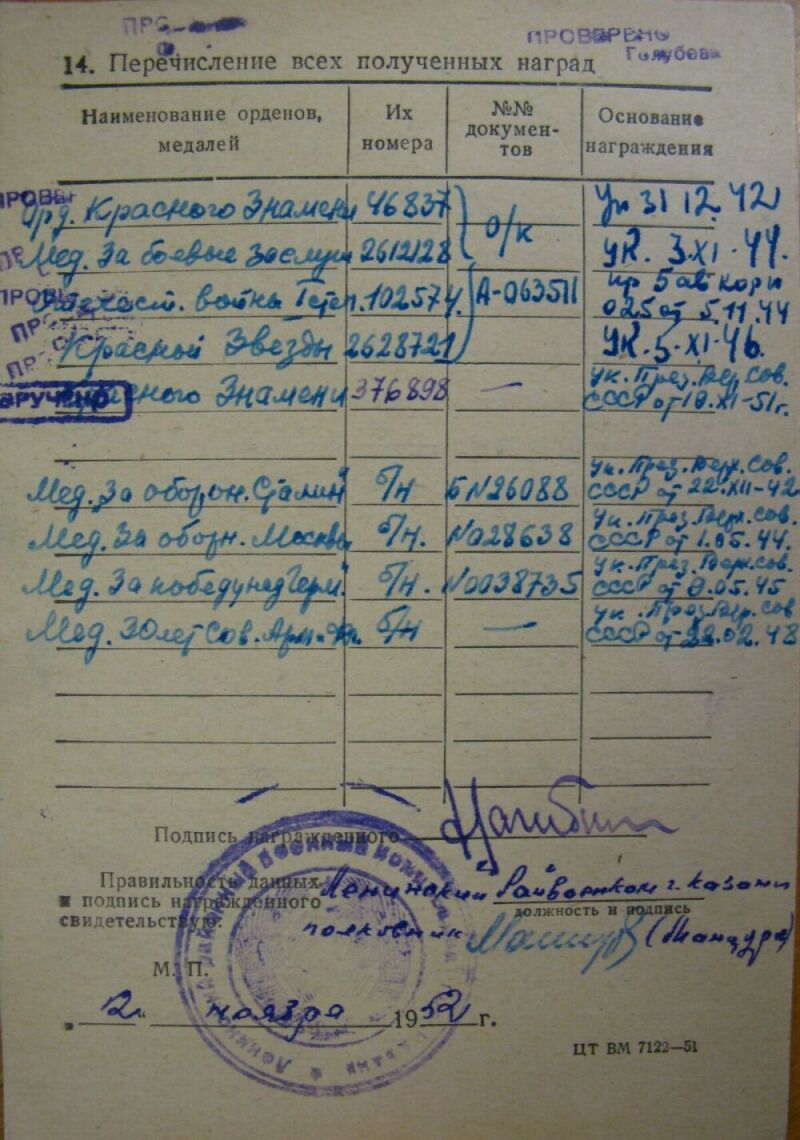 ПРОВЕРЕНО
Голубева
14. Перечисление всех полученных наград
Наименование орденов, медалей
Их номера
№№ документов
Основание награждения
Орд. Красного Знамени 46837 о/к Ук 31 12. 42
Мед. За боевые заслуги 2612128 УК. 3-XI-44.
Отечест. война I степ. 102574. А-063511 пр 5 ав корп
025 от 5.11.44
Красной Звезды 2628721 УК. 5-XI-46.
ВРУЧЕНО
Красного Знамени 376898 — Ук. През. Вер. Сов.
СССР от XI-51г.
Мед. За оборон. Сталин" б/н Б№26088 Ук. През. Верх. Сов.
СССР от 22-XII-42
Мед. За оборн. Москвы б/н. №028638 Ук. През. Верх. Сов.
СССР от 1.05.44.
Мед. За победу над Герм." б/н. №0038735 Ук. През. Верх. сов.
СССР от 9.05.45
Мед. 30 лет Сов. Арм. б/н — Ук. През. Вер. Сов
СССР от 22.02.48
Подпись награжденного
Правильность данных и подпись награжденного свидетельствую:
Ленинский Райвоенком г. Казани
должность и подпись
полковник (Манцура)
М. П.
"12" ноября 1952 г.
ЦТ ВМ 7122—51